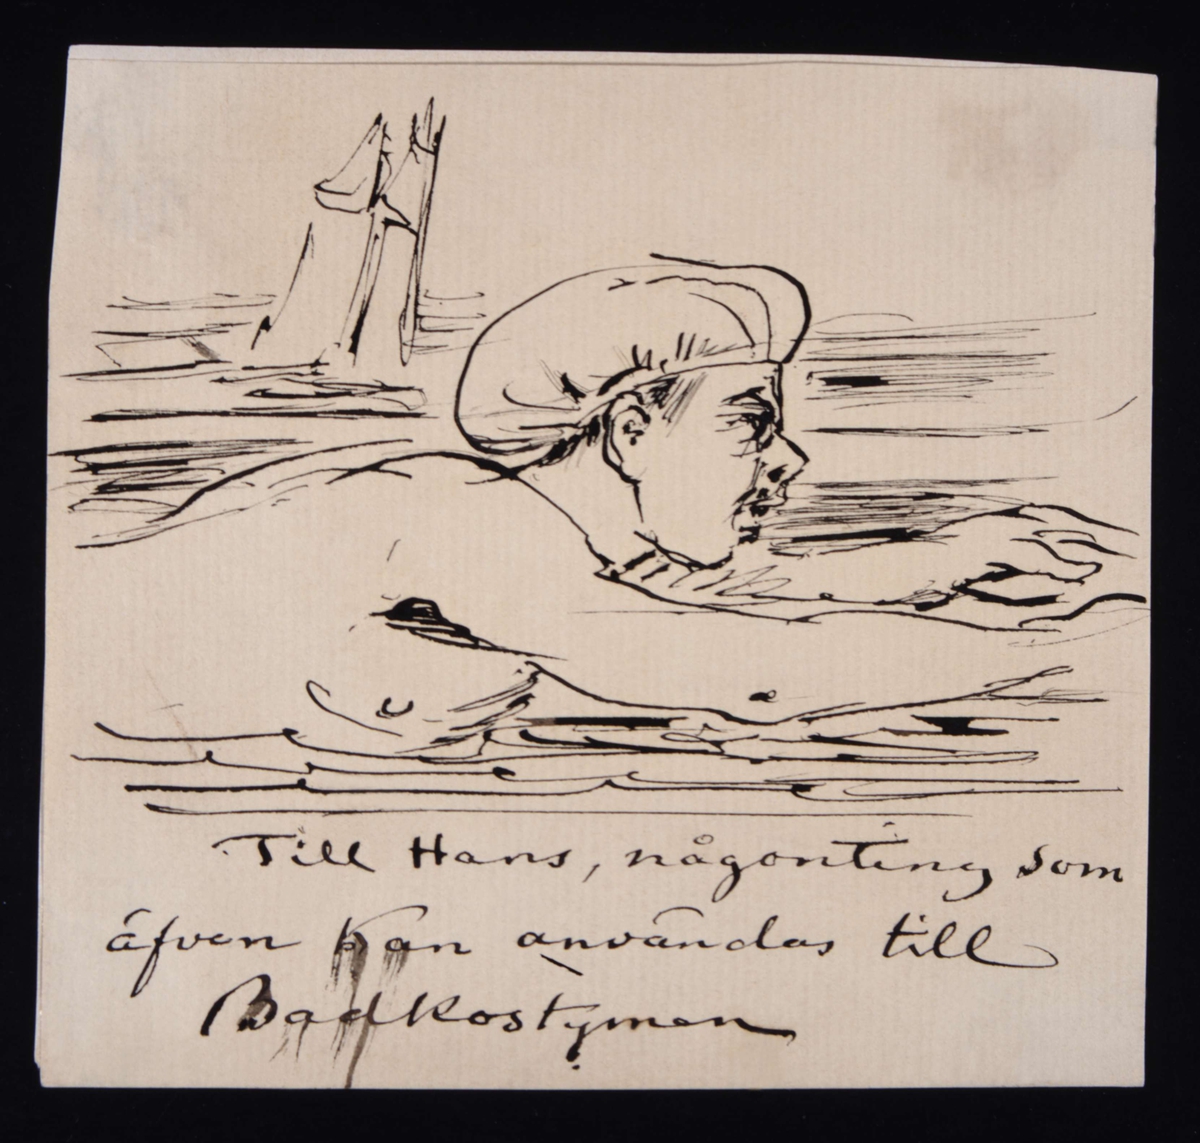 Till Hans, någonting som
äfven kan användas till
Badkostymen